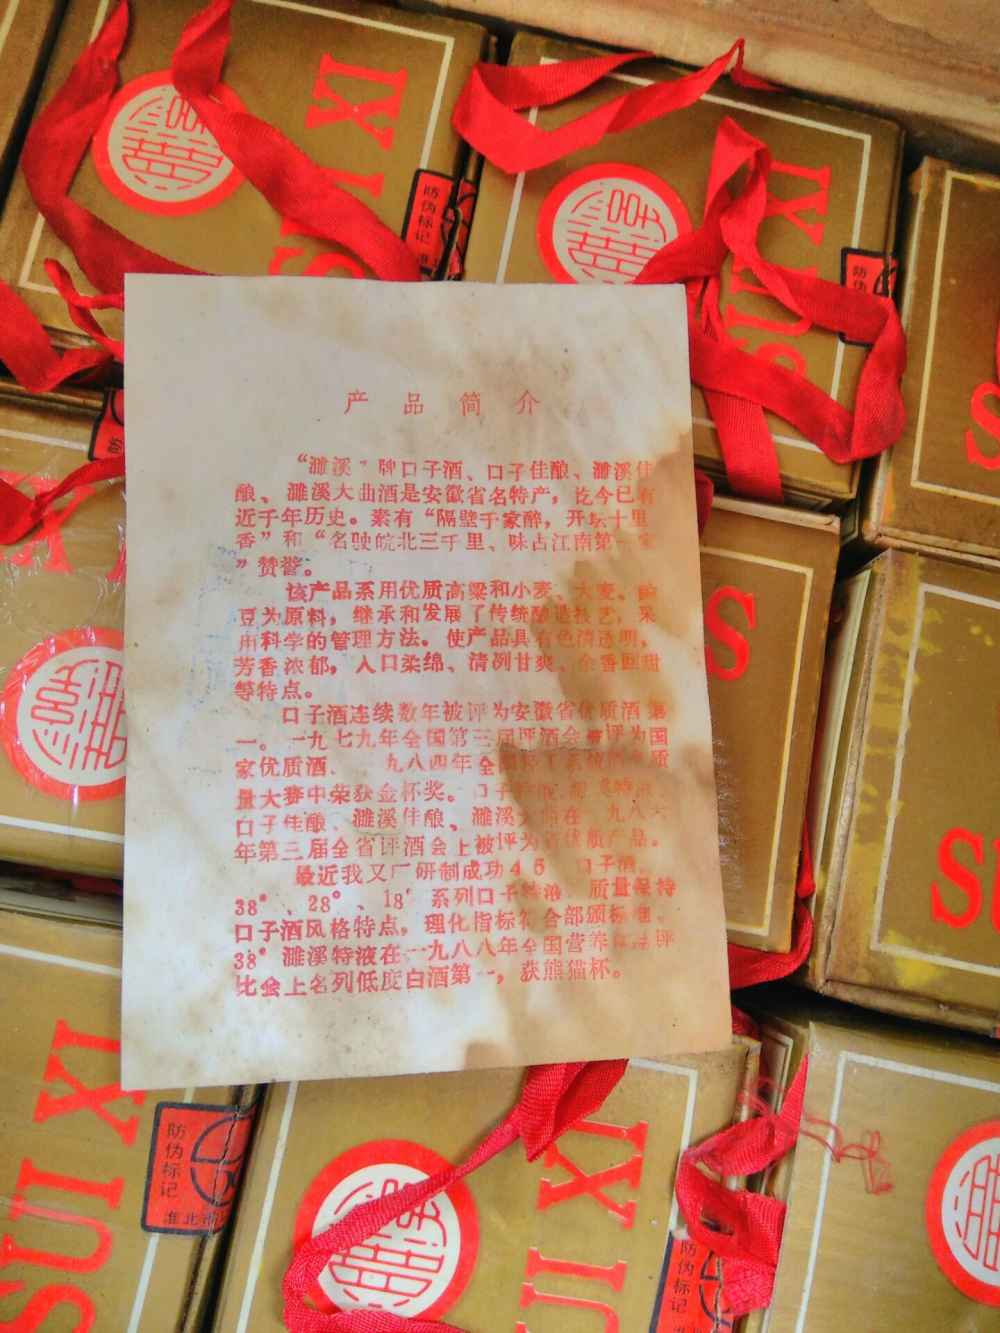 产品简介
“濉溪”牌口子酒、口子佳酿、濉溪佳
酿、濉溪大曲酒是安徽省名特产，迄今已有
近千年历史。素有“隔壁千家醉，开坛十里
香”和“名驶皖北三千里、味占江南第一家
”赞誉。
该产品系用优质高粱和小麦、大麦、豌
豆为原料，继承和发展了传统酿造技艺，采
用科学的管理方法。使产品具有色清透明，
芳香浓郁，入口柔绵、清冽甘爽、余香回甜
等特点。
口子酒连续数年被评为安徽省优质酒第
一。一九七九年全国第三届评酒会被评为国
家优质酒、一九八四年全国轻工系统酒类质
量大赛中荣获金杯奖。口子
口子佳酿、濉溪佳酿、濉溪大曲在一九八六
年第三届全省评酒会上被评为省优质产品。
最近我又厂研制成功45 口子酒，
38°、28°、18°系列口子特液，质量保持
口子酒风格特点，理化指标符合部颁标准、
38°濉溪特液在一九八八年全国营养 评
比会上名列低度白酒第一，获熊猫杯。
IX
防伪标记
淮
IX
SUI
防伪
S
S
SUI
IX
SUI
防伪标记
淮北
IX
防伪标记